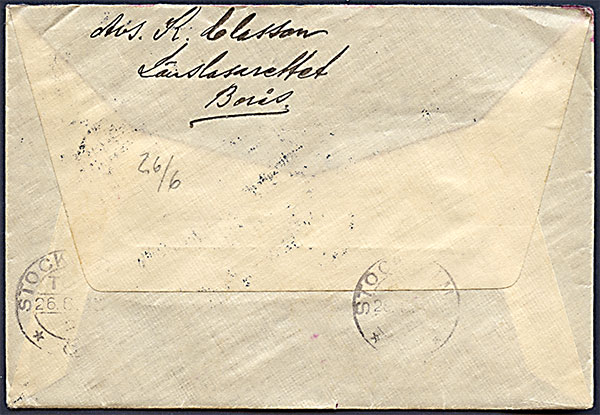 Avs. K. Classon
Länslasarettet
Borås.
26/6
STOCK
T
26.6
STOC
M
2